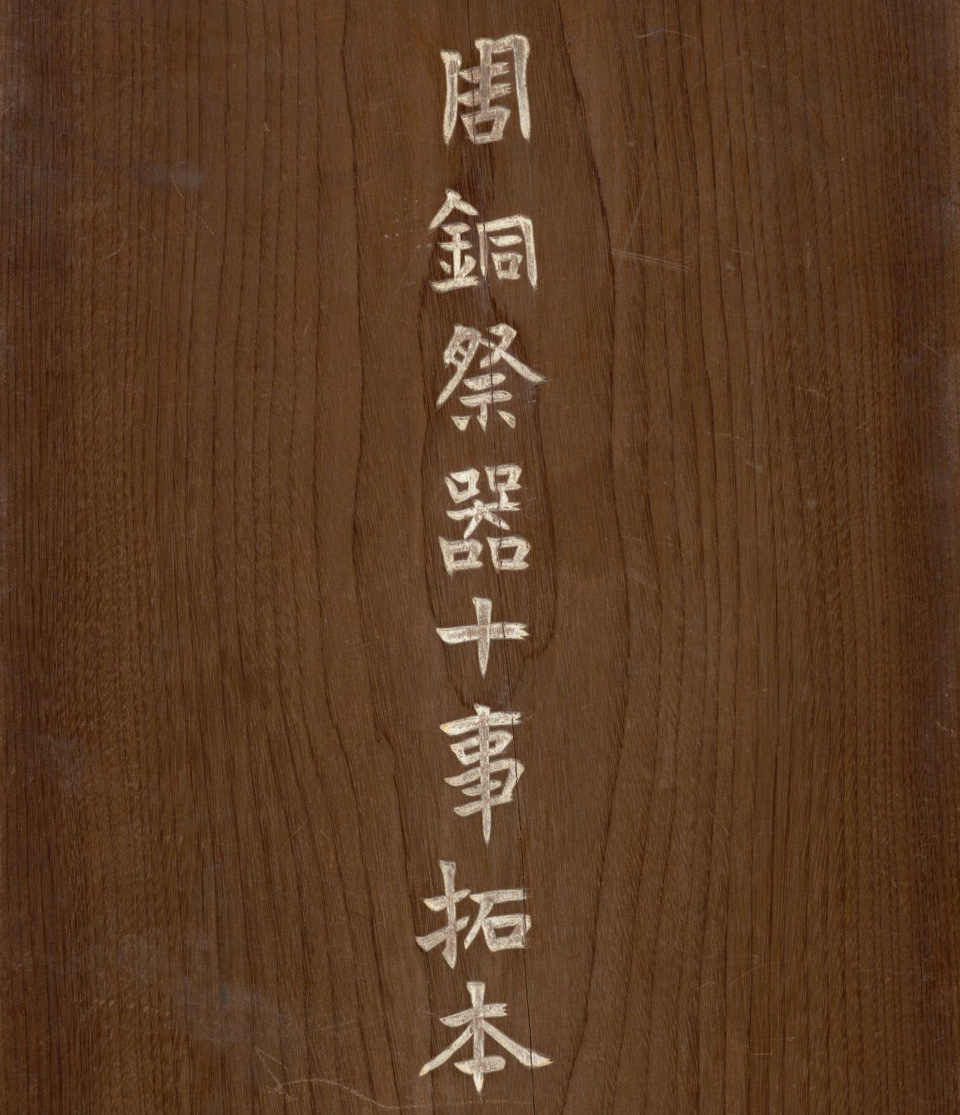 周銅祭器十事拓本